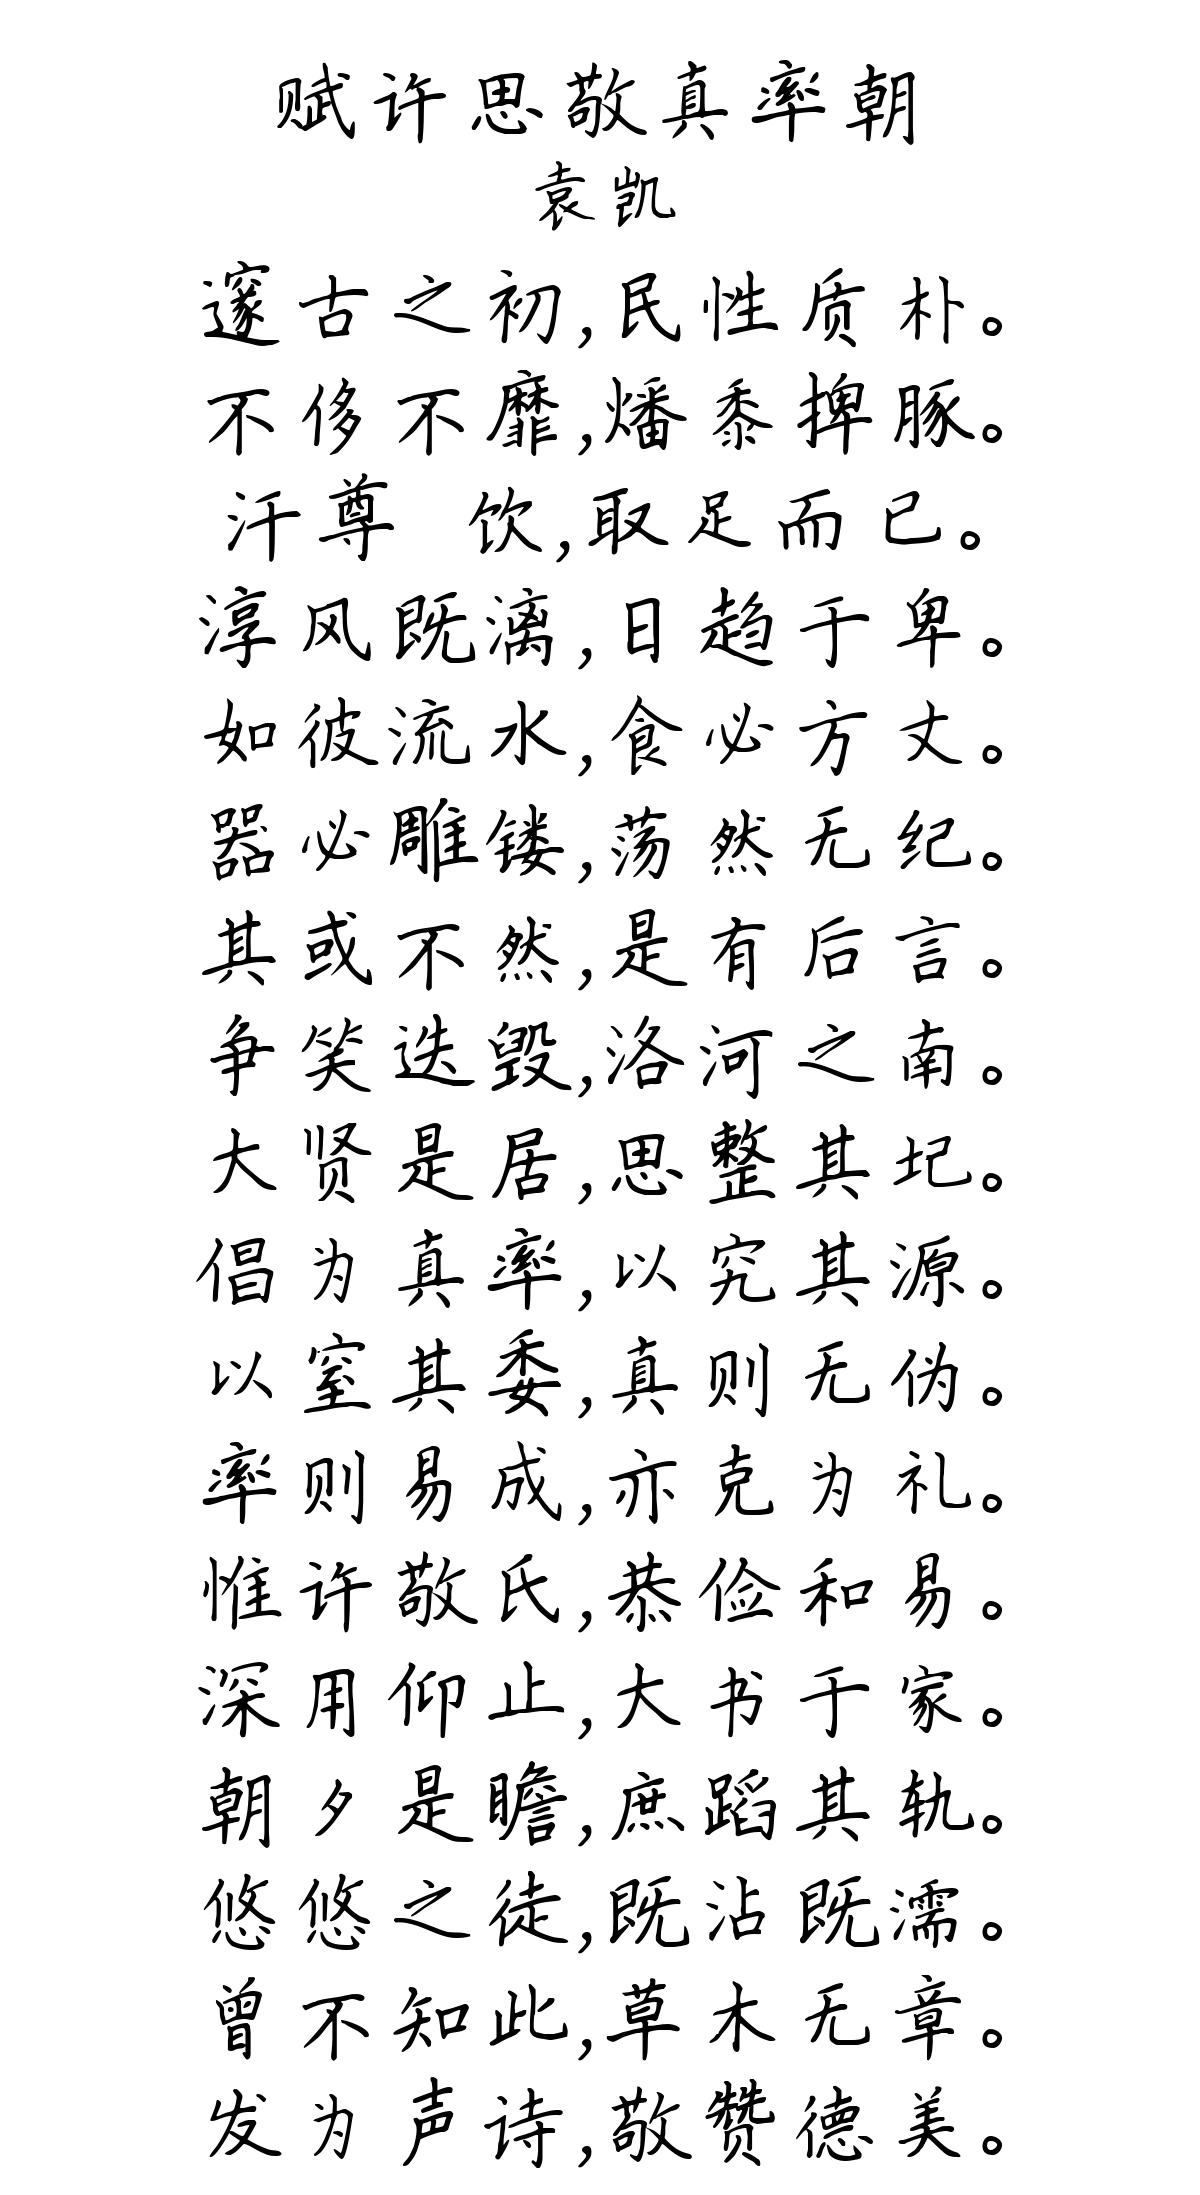 赋许思敬真率朝
袁凯
邃古之初,民性质朴。
不侈不靡,燔黍捭豚。
汙尊 饮,取足而已。
淳风既漓,日趋于卑。
如彼流水,食必方丈。
器必雕镂,荡然无纪。
其或不然,是有后言。
争笑迭毁,洛河之南。
大贤是居,思整其圮。
倡为真率,以究其源。
以窒其委,真则无伪。
率则易成,亦克为礼。
惟许敬氏,恭俭和易。
深用仰止,大书于家。
朝夕是瞻,庶蹈其轨。
悠悠之徒,既沾既濡。
曾不知此,草木无章。
发为声诗,敬赞德美。